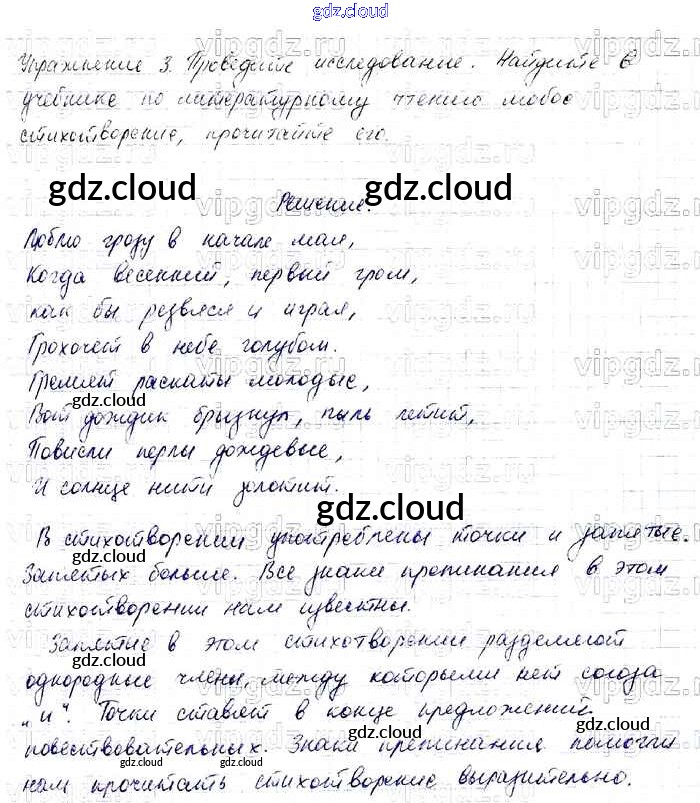 gdz.cloud
Упражнение 3. Проведите исследование. Найдите в
учебнике по литературному чтению любое
стихотворение, прочитайте его.
gdz.cloud gdz.cloud
Решение.
Люблю грозу в начале мая,
Когда весенний, первый гром,
как бы резвяся и играя,
Грохочет в небе голубом.
Гремят раскаты молодые,
gdz.cloud
Вот дождик брызнул, пыль летит,
Повисли перлы дождевые,
И солнце нити золотит.
gdz.cloud
В стихотворении употреблены точки и запятые.
gdz.cloud
Запятых больше. Все знаки препинания в этом
стихотворении нам известны.
Запятые в этом стихотворении разделяют
gdz.cloud
однородные члены, между которыми нет союза
„и". Точки ставят в конце предложений
gdz.cloud
повествовательных. Знаки препинания помогли
gdz.cloud gdz.cloud
нам прочитать стихотворение выразительно.